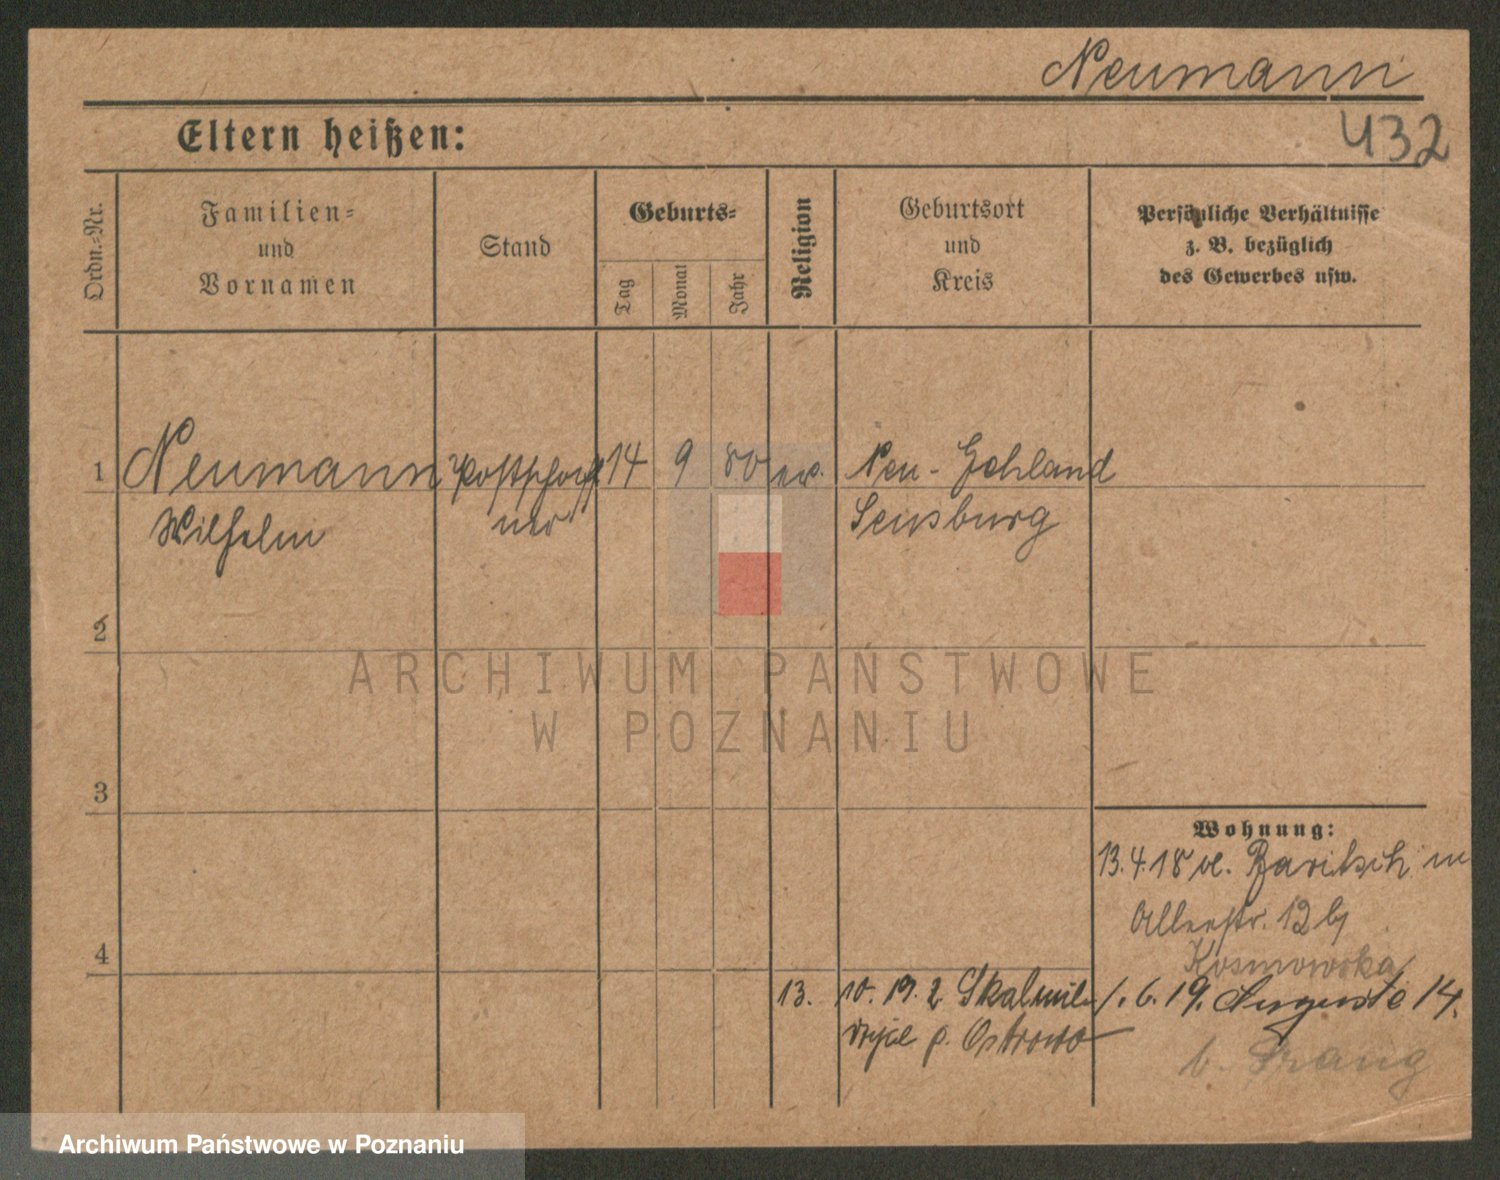 Neumann
432
Eltern heißen:
Ordn.-Nr.
Familien-
und
Vornamen
Stand
Geburts-
Tag
Monat
Jahr
Religion
Geburtsort
und
Kreis
Persönliche Verhältnisse
z. B. bezüglich
des Gewerbes usw.
1 Neumann 14 9 80 ev. Neu-Gehland
Wilhelm Sensburg
2
3
4
Wohnung:
13.4.18 Baritsch
12 b/
Kosmowska
13. 10. 19. Skalmie 1. 6. 19. Auguste 14.
rzyce p. Ostrowo
b. Prang
ARCHIWUM PAŃSTWOWE
W POZNANIU
Archiwum Państwowe w Poznaniu